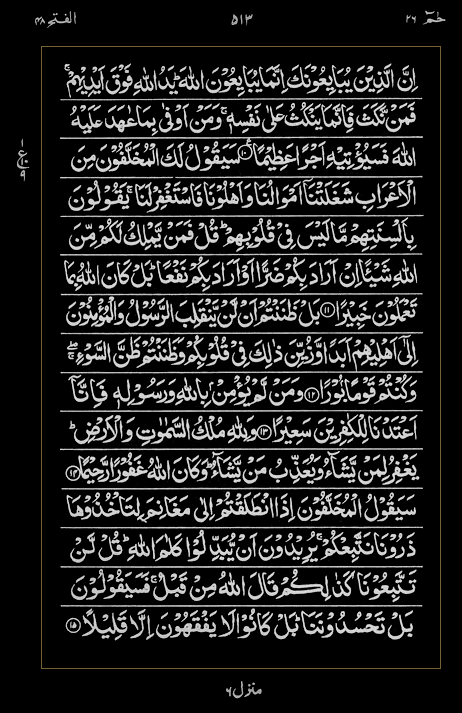 حٰمٓ ٢٦ ٥١٣ الفتح ٤٨
اِنَّ الَّذِيْنَ يُبَايِعُوْنَكَ اِنَّمَا يُبَايِعُوْنَ اللّٰهَ ؕ يَدُ اللّٰهِ فَوْقَ اَيْدِيْهِمْ ۚ
فَمَنْ نَّكَثَ فَاِنَّمَا يَنْكُثُ عَلٰى نَفْسِهٖ ۚ وَمَنْ اَوْفٰى بِمَا عٰهَدَ عَلَيْهُ
اللّٰهَ فَسَيُؤْتِيْهِ اَجْرًا عَظِيْمًا ۝١٠ سَيَقُوْلُ لَكَ الْمُخَلَّفُوْنَ مِنَ
الْاَعْرَابِ شَغَلَتْنَاۤ اَمْوَالُنَا وَاَهْلُوْنَا فَاسْتَغْفِرْ لَنَا ۚ يَقُوْلُوْنَ
بِاَلْسِنَتِهِمْ مَّا لَيْسَ فِيْ قُلُوْبِهِمْ ؕ قُلْ فَمَنْ يَّمْلِكُ لَكُمْ مِّنَ
اللّٰهِ شَيْئًا اِنْ اَرَادَ بِكُمْ ضَرًّا اَوْ اَرَادَ بِكُمْ نَفْعًا ؕ بَلْ كَانَ اللّٰهُ بِمَا
تَعْمَلُوْنَ خَبِيْرًا ۝١١ بَلْ ظَنَنْتُمْ اَنْ لَّنْ يَّنْقَلِبَ الرَّسُوْلُ وَالْمُؤْمِنُوْنَ
اِلٰۤى اَهْلِيْهِمْ اَبَدًا وَّزُيِّنَ ذٰلِكَ فِيْ قُلُوْبِكُمْ وَظَنَنْتُمْ ظَنَّ السَّوْءِ ۖۚ
وَكُنْتُمْ قَوْمًۢا بُوْرًا ۝١٢ وَمَنْ لَّمْ يُؤْمِنْۢ بِاللّٰهِ وَرَسُوْلِهٖ فَاِنَّاۤ
اَعْتَدْنَا لِلْكٰفِرِيْنَ سَعِيْرًا ۝١٣ وَلِلّٰهِ مُلْكُ السَّمٰوٰتِ وَالْاَرْضِ ؕ
يَغْفِرُ لِمَنْ يَّشَآءُ وَيُعَذِّبُ مَنْ يَّشَآءُ ؕ وَكَانَ اللّٰهُ غَفُوْرًا رَّحِيْمًا ۝١٤
سَيَقُوْلُ الْمُخَلَّفُوْنَ اِذَا انْطَلَقْتُمْ اِلٰى مَغَانِمَ لِتَاْخُذُوْهَا
ذَرُوْنَا نَتَّبِعْكُمْ ۚ يُرِيْدُوْنَ اَنْ يُّبَدِّلُوْا كَلٰمَ اللّٰهِ ؕ قُلْ لَّنْ
تَتَّبِعُوْنَا كَذٰلِكُمْ قَالَ اللّٰهُ مِنْ قَبْلُ ۚ فَسَيَقُوْلُوْنَ
بَلْ تَحْسُدُوْنَنَا ؕ بَلْ كَانُوْا لَا يَفْقَهُوْنَ اِلَّا قَلِيْلًا ۝١٥
١
ع
٩
منزل ٦